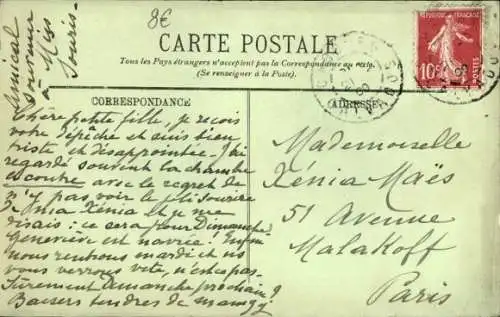 8€
Amical
Souvenir
à Miss
Souris.
CARTE POSTALE
Tous les Pays étrangers n'acceptent pas la Correspondance au recto.
(Se renseigner à la Poste).
CORRESPONDANCE
ADRESSE
REPUBLIQUE FRANÇAISE
10c
POSTES
Chère petite fille, je reçois
votre dépêche et suis bien
triste et désappointée. J'ai
regardé souvent la chambre
avec le regret de
n'y pas voir le joli sourire
de ma Xénia et je me
disais : ce sera pour Dimanche
Geneviève est navrée ! Enfin
nous rentrons mardi et ns
vous verrons vite, n'est ce pas
Sûrement dimanche prochain ?
Baisers tendres de
Mademoiselle
Xénia Maës
51 Avenue
Malakoff
Paris